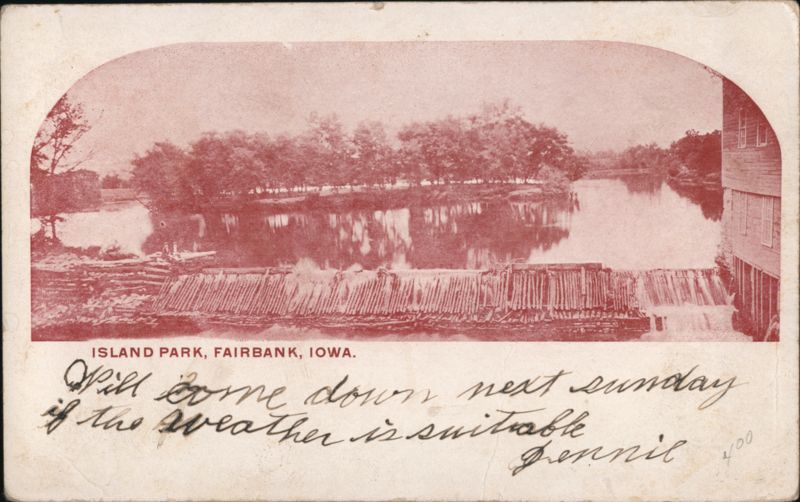 ISLAND PARK, FAIRBANK, IOWA.
Will come down next sunday
if the Weather is suitable
Jennie
400